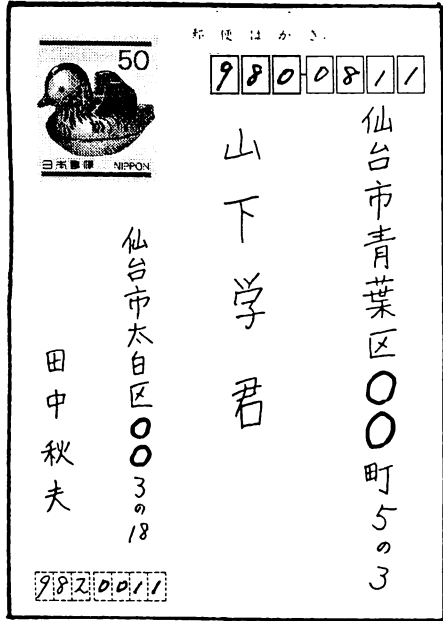 郵便はかき
50
日本郵便 NIPPON
980-0811
仙台市青葉区〇〇町5の3
山下学君
仙台市太白区〇〇3の18
田中秋夫
9820011